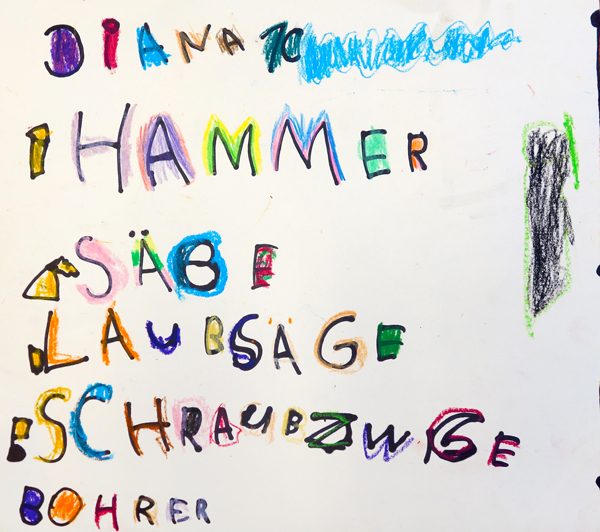 DIANA
1 HAMMER
SÄBE
LAUBSÄGE
SCHRAUBZWGE
BOHRER